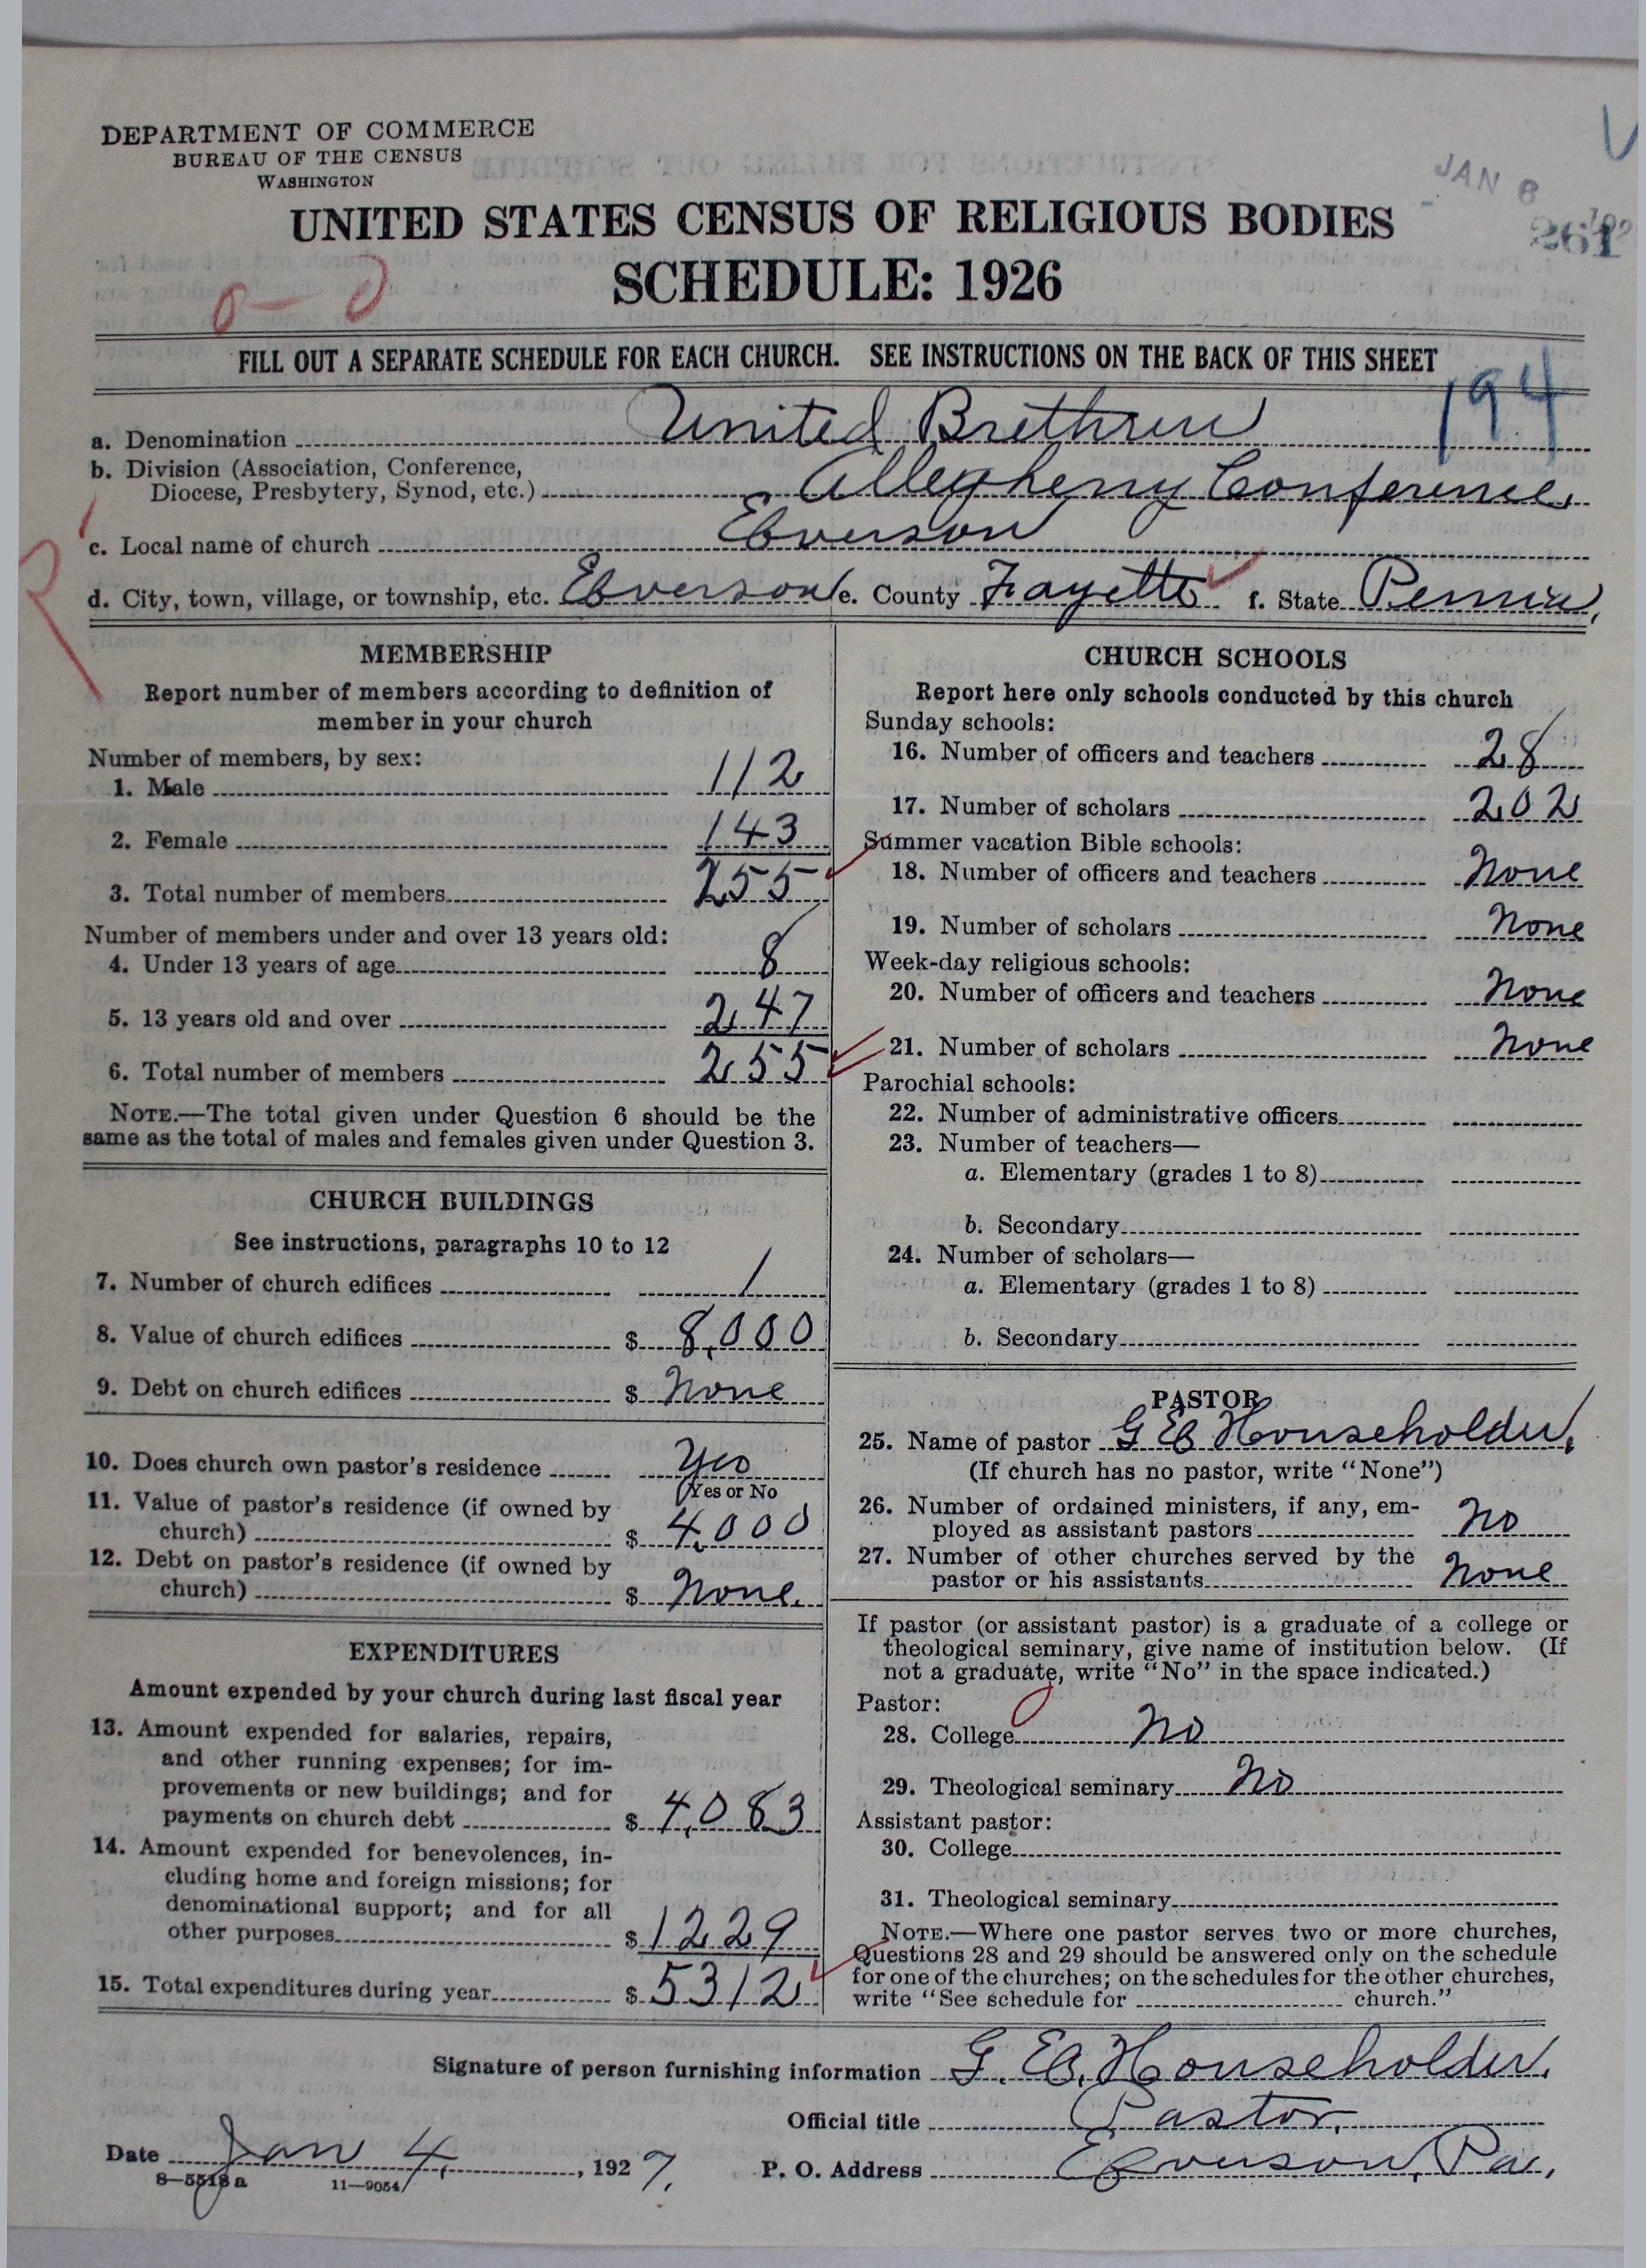 DEPARTMENT OF COMMERCE
BUREAU OF THE CENSUS
WASHINGTON
JAN 8
261
UNITED STATES CENSUS OF RELIGIOUS BODIES
SCHEDULE: 1926
FILL OUT A SEPARATE SCHEDULE FOR EACH CHURCH. SEE INSTRUCTIONS ON THE BACK OF THIS SHEET
194
a. Denomination United Brethren
b. Division (Association, Conference,
Diocese, Presbytery, Synod, etc.) Allegheny Conference.
c. Local name of church Everson
d. City, town, village, or township, etc. Everson e. County Fayette f. State Penna.
MEMBERSHIP
Report number of members according to definition of
member in your church
Number of members, by sex:
1. Male 112
2. Female 143
3. Total number of members 255
Number of members under and over 13 years old:
4. Under 13 years of age 8
5. 13 years old and over 247
6. Total number of members 255
NOTE.—The total given under Question 6 should be the
same as the total of males and females given under Question 3.
CHURCH BUILDINGS
See instructions, paragraphs 10 to 12
7. Number of church edifices 1
8. Value of church edifices $ 8,000
9. Debt on church edifices $ None
10. Does church own pastor's residence Yes
(Yes or No
11. Value of pastor's residence (if owned by
church) $ 4,000
12. Debt on pastor's residence (if owned by
church) $ None.
EXPENDITURES
Amount expended by your church during last fiscal year
13. Amount expended for salaries, repairs,
and other running expenses; for im-
provements or new buildings; and for
payments on church debt $ 4,083
14. Amount expended for benevolences, in-
cluding home and foreign missions; for
denominational support; and for all
other purposes $ 1229
15. Total expenditures during year $ 5312
CHURCH SCHOOLS
Report here only schools conducted by this church
Sunday schools:
16. Number of officers and teachers 28
17. Number of scholars 202
Summer vacation Bible schools:
18. Number of officers and teachers None
19. Number of scholars None
Week-day religious schools:
20. Number of officers and teachers None
21. Number of scholars None
Parochial schools:
22. Number of administrative officers
23. Number of teachers—
a. Elementary (grades 1 to 8)
b. Secondary
24. Number of scholars—
a. Elementary (grades 1 to 8)
b. Secondary
PASTOR
25. Name of pastor G E Householder.
(If church has no pastor, write "None")
26. Number of ordained ministers, if any, em-
ployed as assistant pastors No
27. Number of other churches served by the
pastor or his assistants None
If pastor (or assistant pastor) is a graduate of a college or
theological seminary, give name of institution below. (If
not a graduate, write "No" in the space indicated.)
Pastor:
28. College No
29. Theological seminary No
Assistant pastor:
30. College
31. Theological seminary
NOTE.—Where one pastor serves two or more churches,
Questions 28 and 29 should be answered only on the schedule
for one of the churches; on the schedules for the other churches,
write "See schedule for church."
Signature of person furnishing information G. E. Householder.
Official title Pastor.
Date Jan 4, 1927. P. O. Address Everson, Pa.
8—5518 a 11—9054